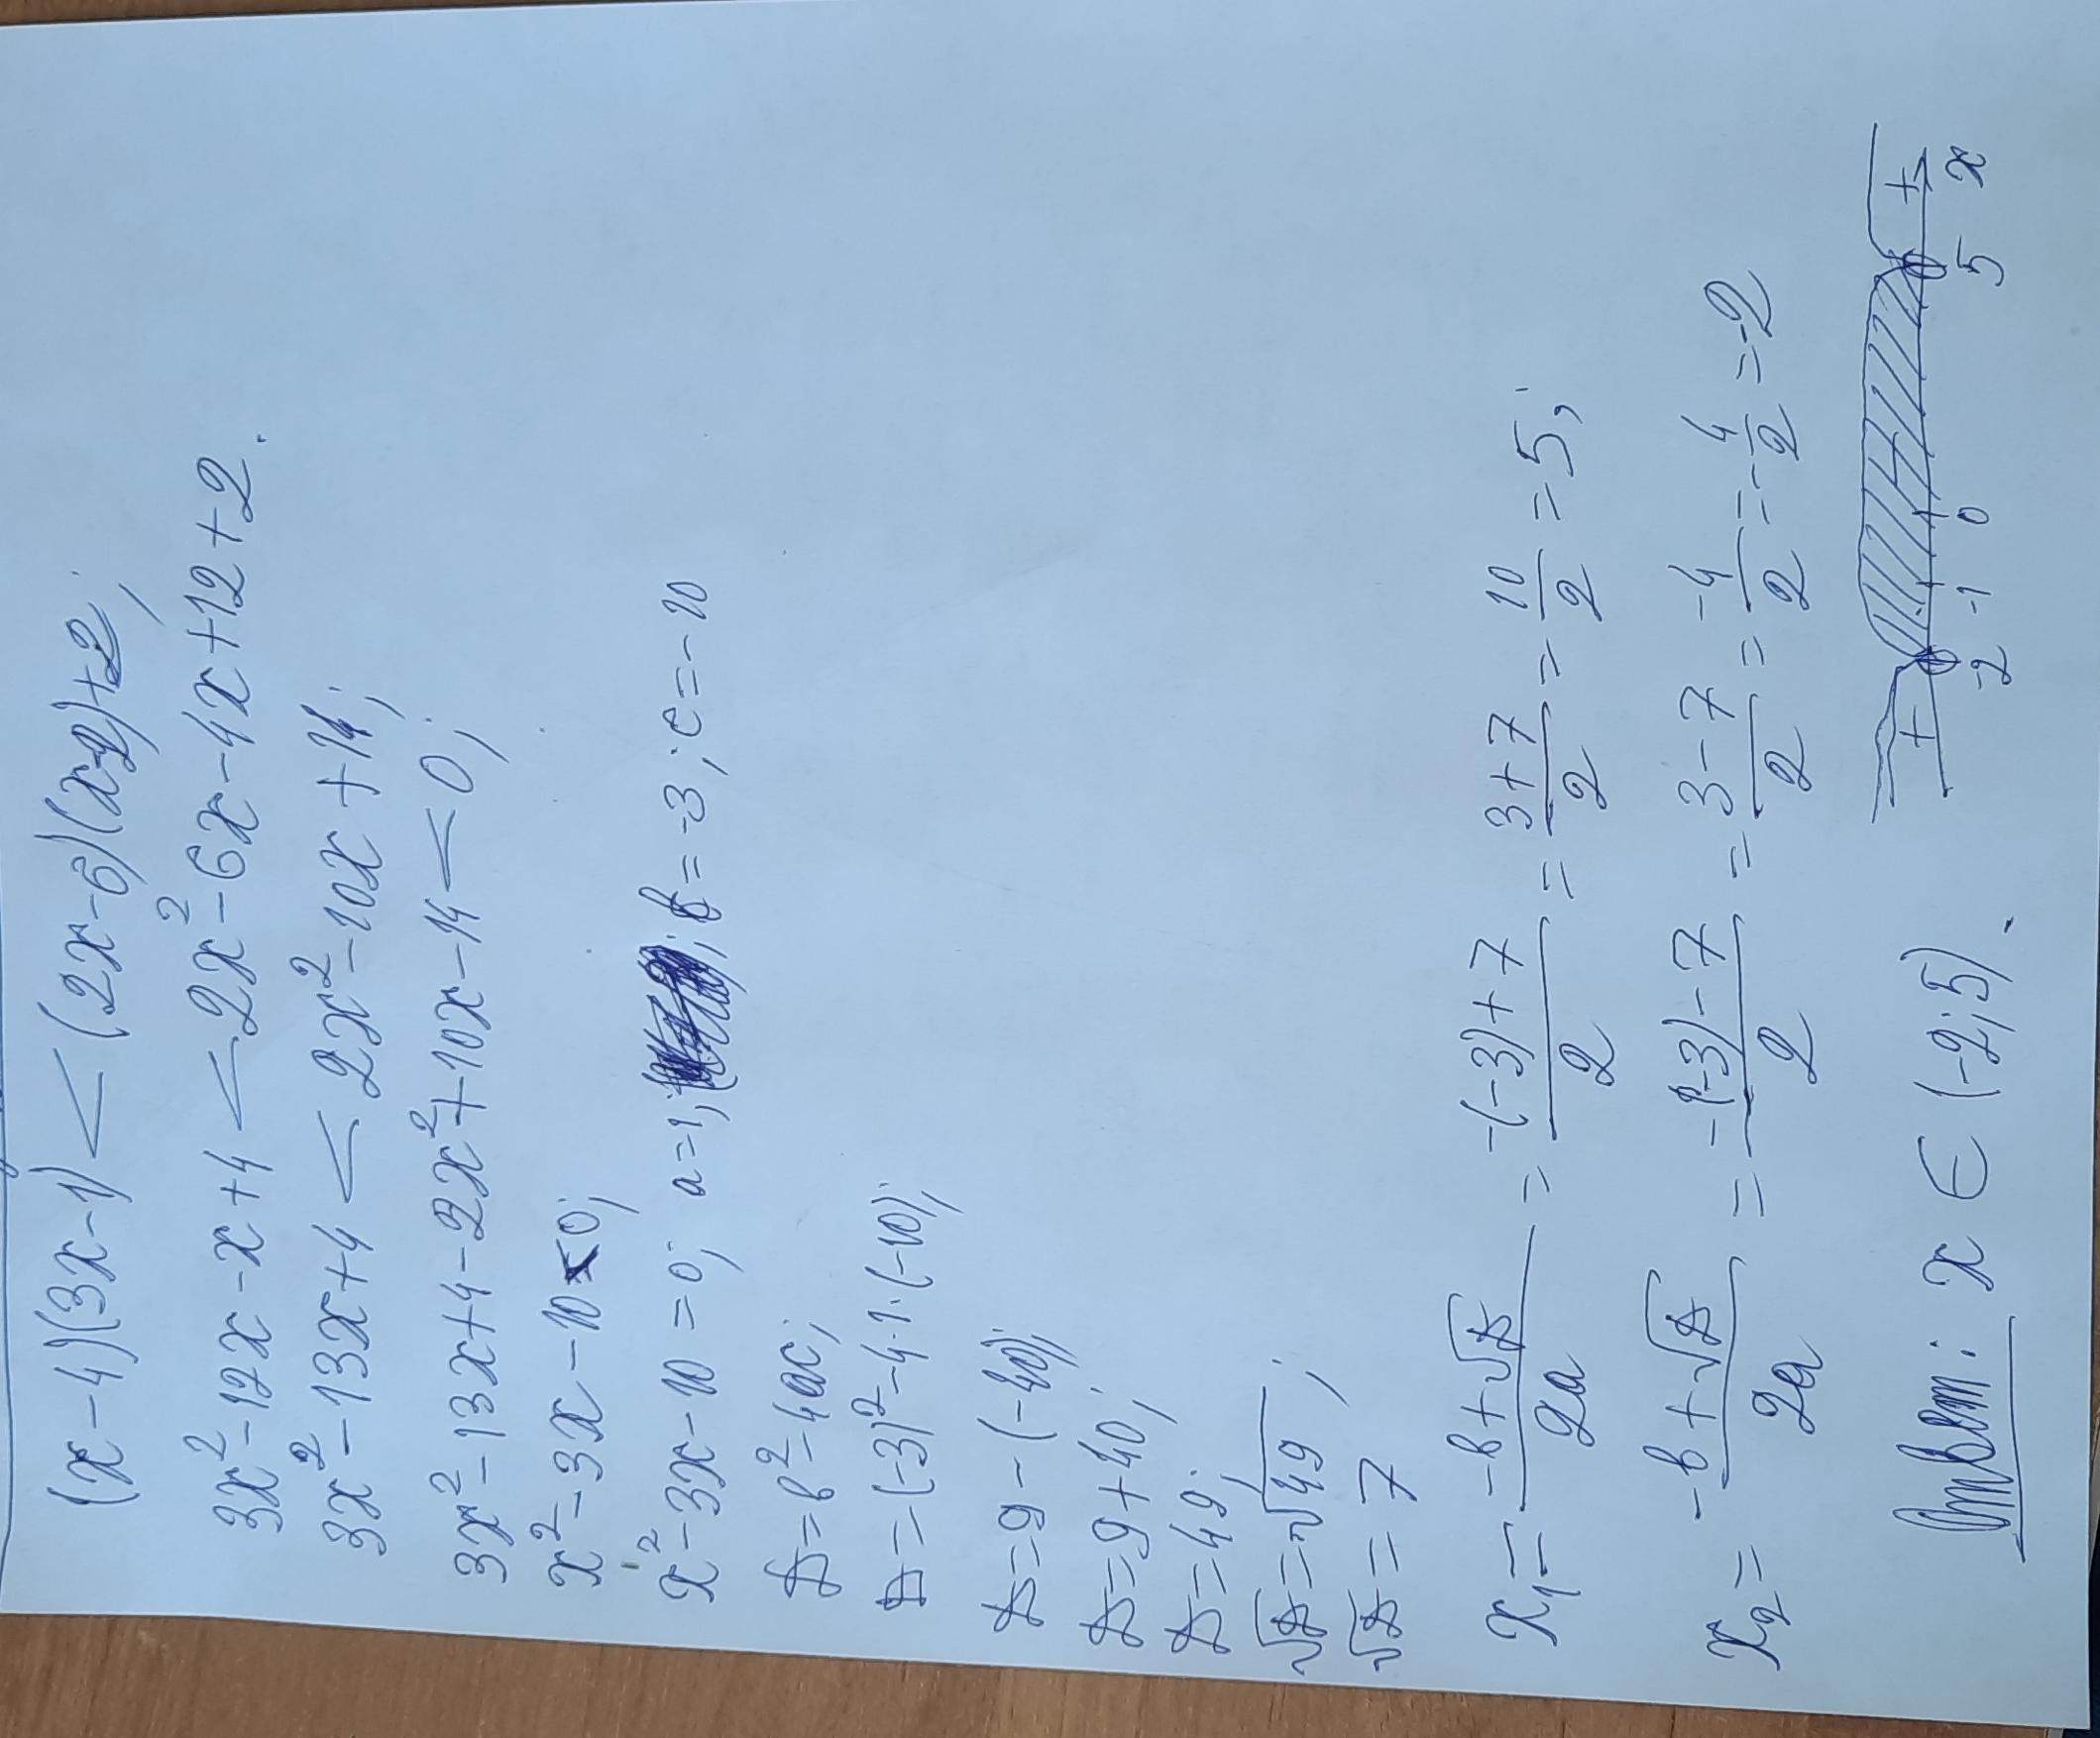 (x-4)(3x-1) < (2x-6)(x-2)+2;
3x²-12x-x+4 < 2x²-6x-4x+12+2.
3x²-13x+4 < 2x²-10x+14;
3x²-13x+4-2x²+10x-14<0;
x²-3x-10<0;
x²-3x-10=0; a=1; b=-3; c=-10
D=b²-4ac;
D=(-3)²-4·1·(-10);
D=9-(-40);
D=9+40;
D=49;
√D=√49;
√D=7
x₁= (-b+√D)/2a = (-(-3)+7)/2 = (3+7)/2 = 10/2 = 5;
x₂= (-b+√D)/2a = (-(-3)-7)/2 = (3-7)/2 = -4/2 = -4/2 = -2
+ - +
-2 -1 0 5 x
Ответ: x ∈ (-2;5).